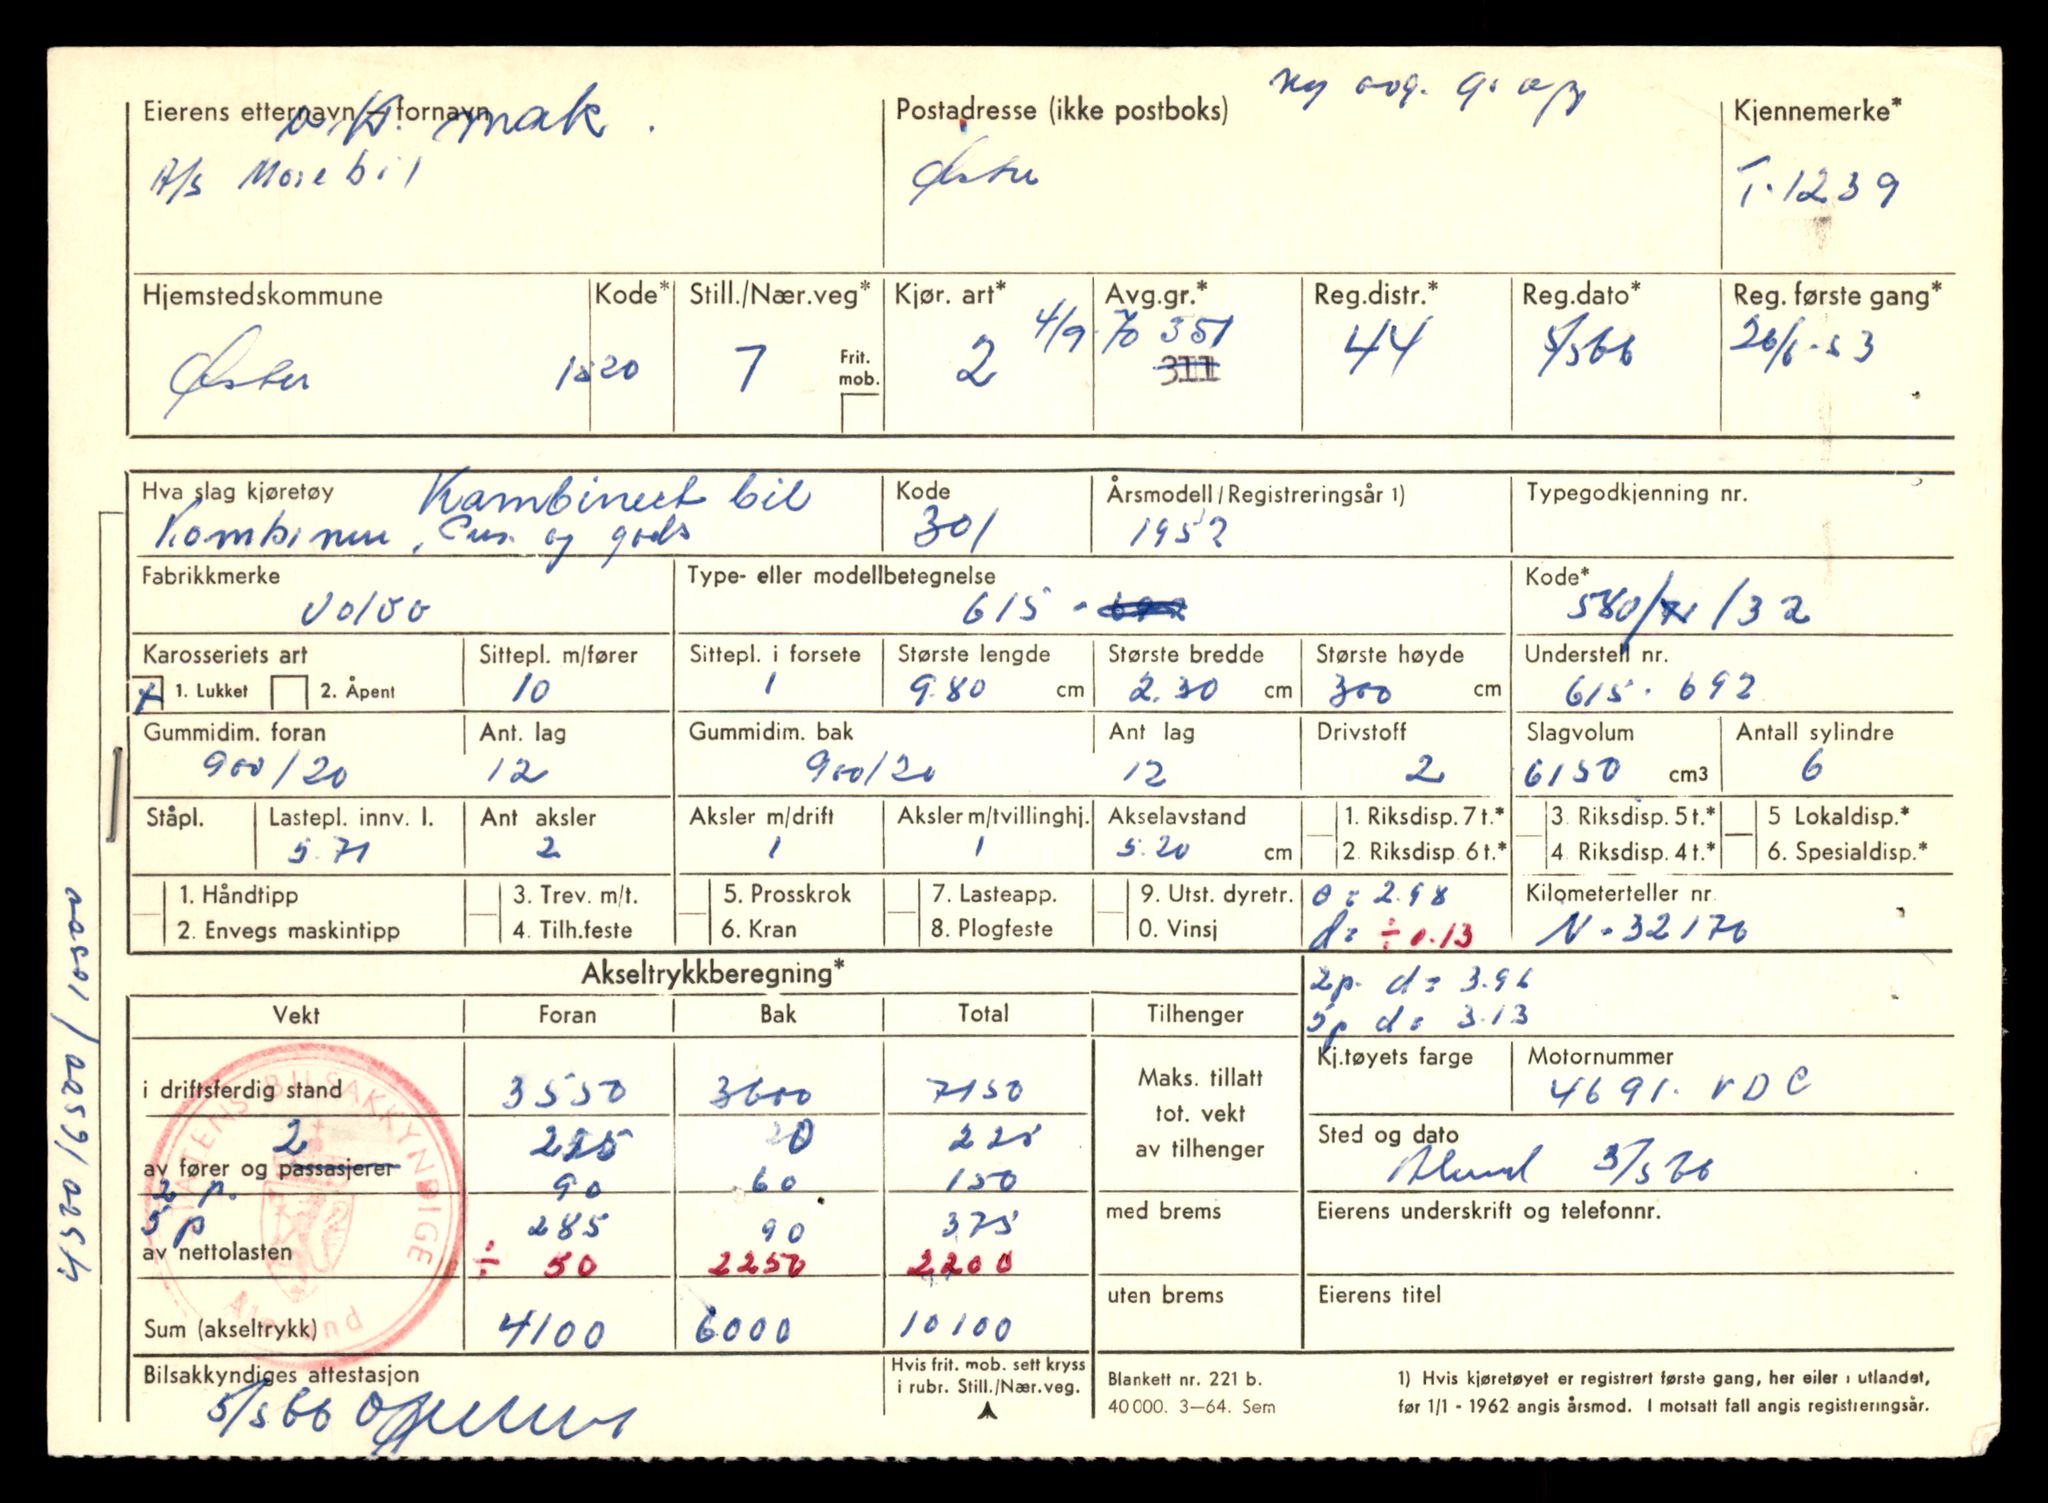 Eierens etternavn – fornavn
A/s Mørebil
Postadresse (ikke postboks)
Ørsta
Kjennemerke*
T-1239
Hjemstedskommune Kode* Still./Nær.veg* Kjør. art* Avg.gr.* Reg.distr.* Reg.dato* Reg. første gang*
4/9-70 351
Ørsta 1520 7 Frit. mob. 2 311 44 5/5 66 26/6-53
Hva slag kjøretøy Kombinert bil Kode Årsmodell/Registreringsår 1) Typegodkjenning nr.
og gods 301 1952
Fabrikkmerke Type- eller modellbetegnelse Kode*
Volvo 615 580/71/32
Karosseriets art Sittepl. m/fører Sittepl. i forsete Største lengde Største bredde Største høyde Understell nr.
x 1. Lukket 2. Åpent 10 1 9.80 cm 2.30 cm 300 cm 615-692
Gummidim. foran Ant. lag Gummidim. bak Ant lag Drivstoff Slagvolum Antall sylindre
900/20 12 900/20 12 2 6150 cm3 6
Ståpl. Lastepl. innv. l. Ant aksler Aksler m/drift Aksler m/tvillinghj. Akselavstand 1. Riksdisp. 7 t.* 3. Riksdisp. 5 t.* 5 Lokaldisp.*
5.71 2 1 1 5.20 cm 2. Riksdisp. 6 t.* 4. Riksdisp. 4 t.* 6. Spesialdisp.*
1. Håndtipp 3. Trev. m/t. 5. Prosskrok 7. Lasteapp. 9. Utst. dyretr. a = 2.98 Kilometerteller nr
2. Envegs maskintipp 4. Tilh.feste 6. Kran 8. Plogfeste 0. Vinsj d = ÷ 0.13 N-32170
Akseltrykkberegning*
2p. d = 3.96
5p d = 3.13
Vekt Foran Bak Total Tilhenger
Kj.tøyets farge Motornummer
4691. VDC
i driftsferdig stand 3550 3600 7150
Maks. tillatt
tot. vekt
av tilhenger
2 225
av fører og passasjerer
Sted og dato
3/5 66
2 p. 90 60 150
5 p 285 90 375
med brems
Eierens underskrift og telefonnr.
av nettolasten ÷ 50 2250 2200
uten brems
Eierens titel
Sum (akseltrykk) 4100 6000 10100
STATENS BILSAKKYNDIGE
Ålesund
Bilsakkyndiges attestasjon
5/5 66
Hvis frit. mob. sett kryss
i rubr. Still./Nær.veg.
Blankett nr. 221 b.
40 000. 3–64. Sem
1) Hvis kjøretøyet er registrert første gang, her eller i utlandet,
før 1/1 - 1962 angis årsmod. I motsatt fall angis registreringsår.